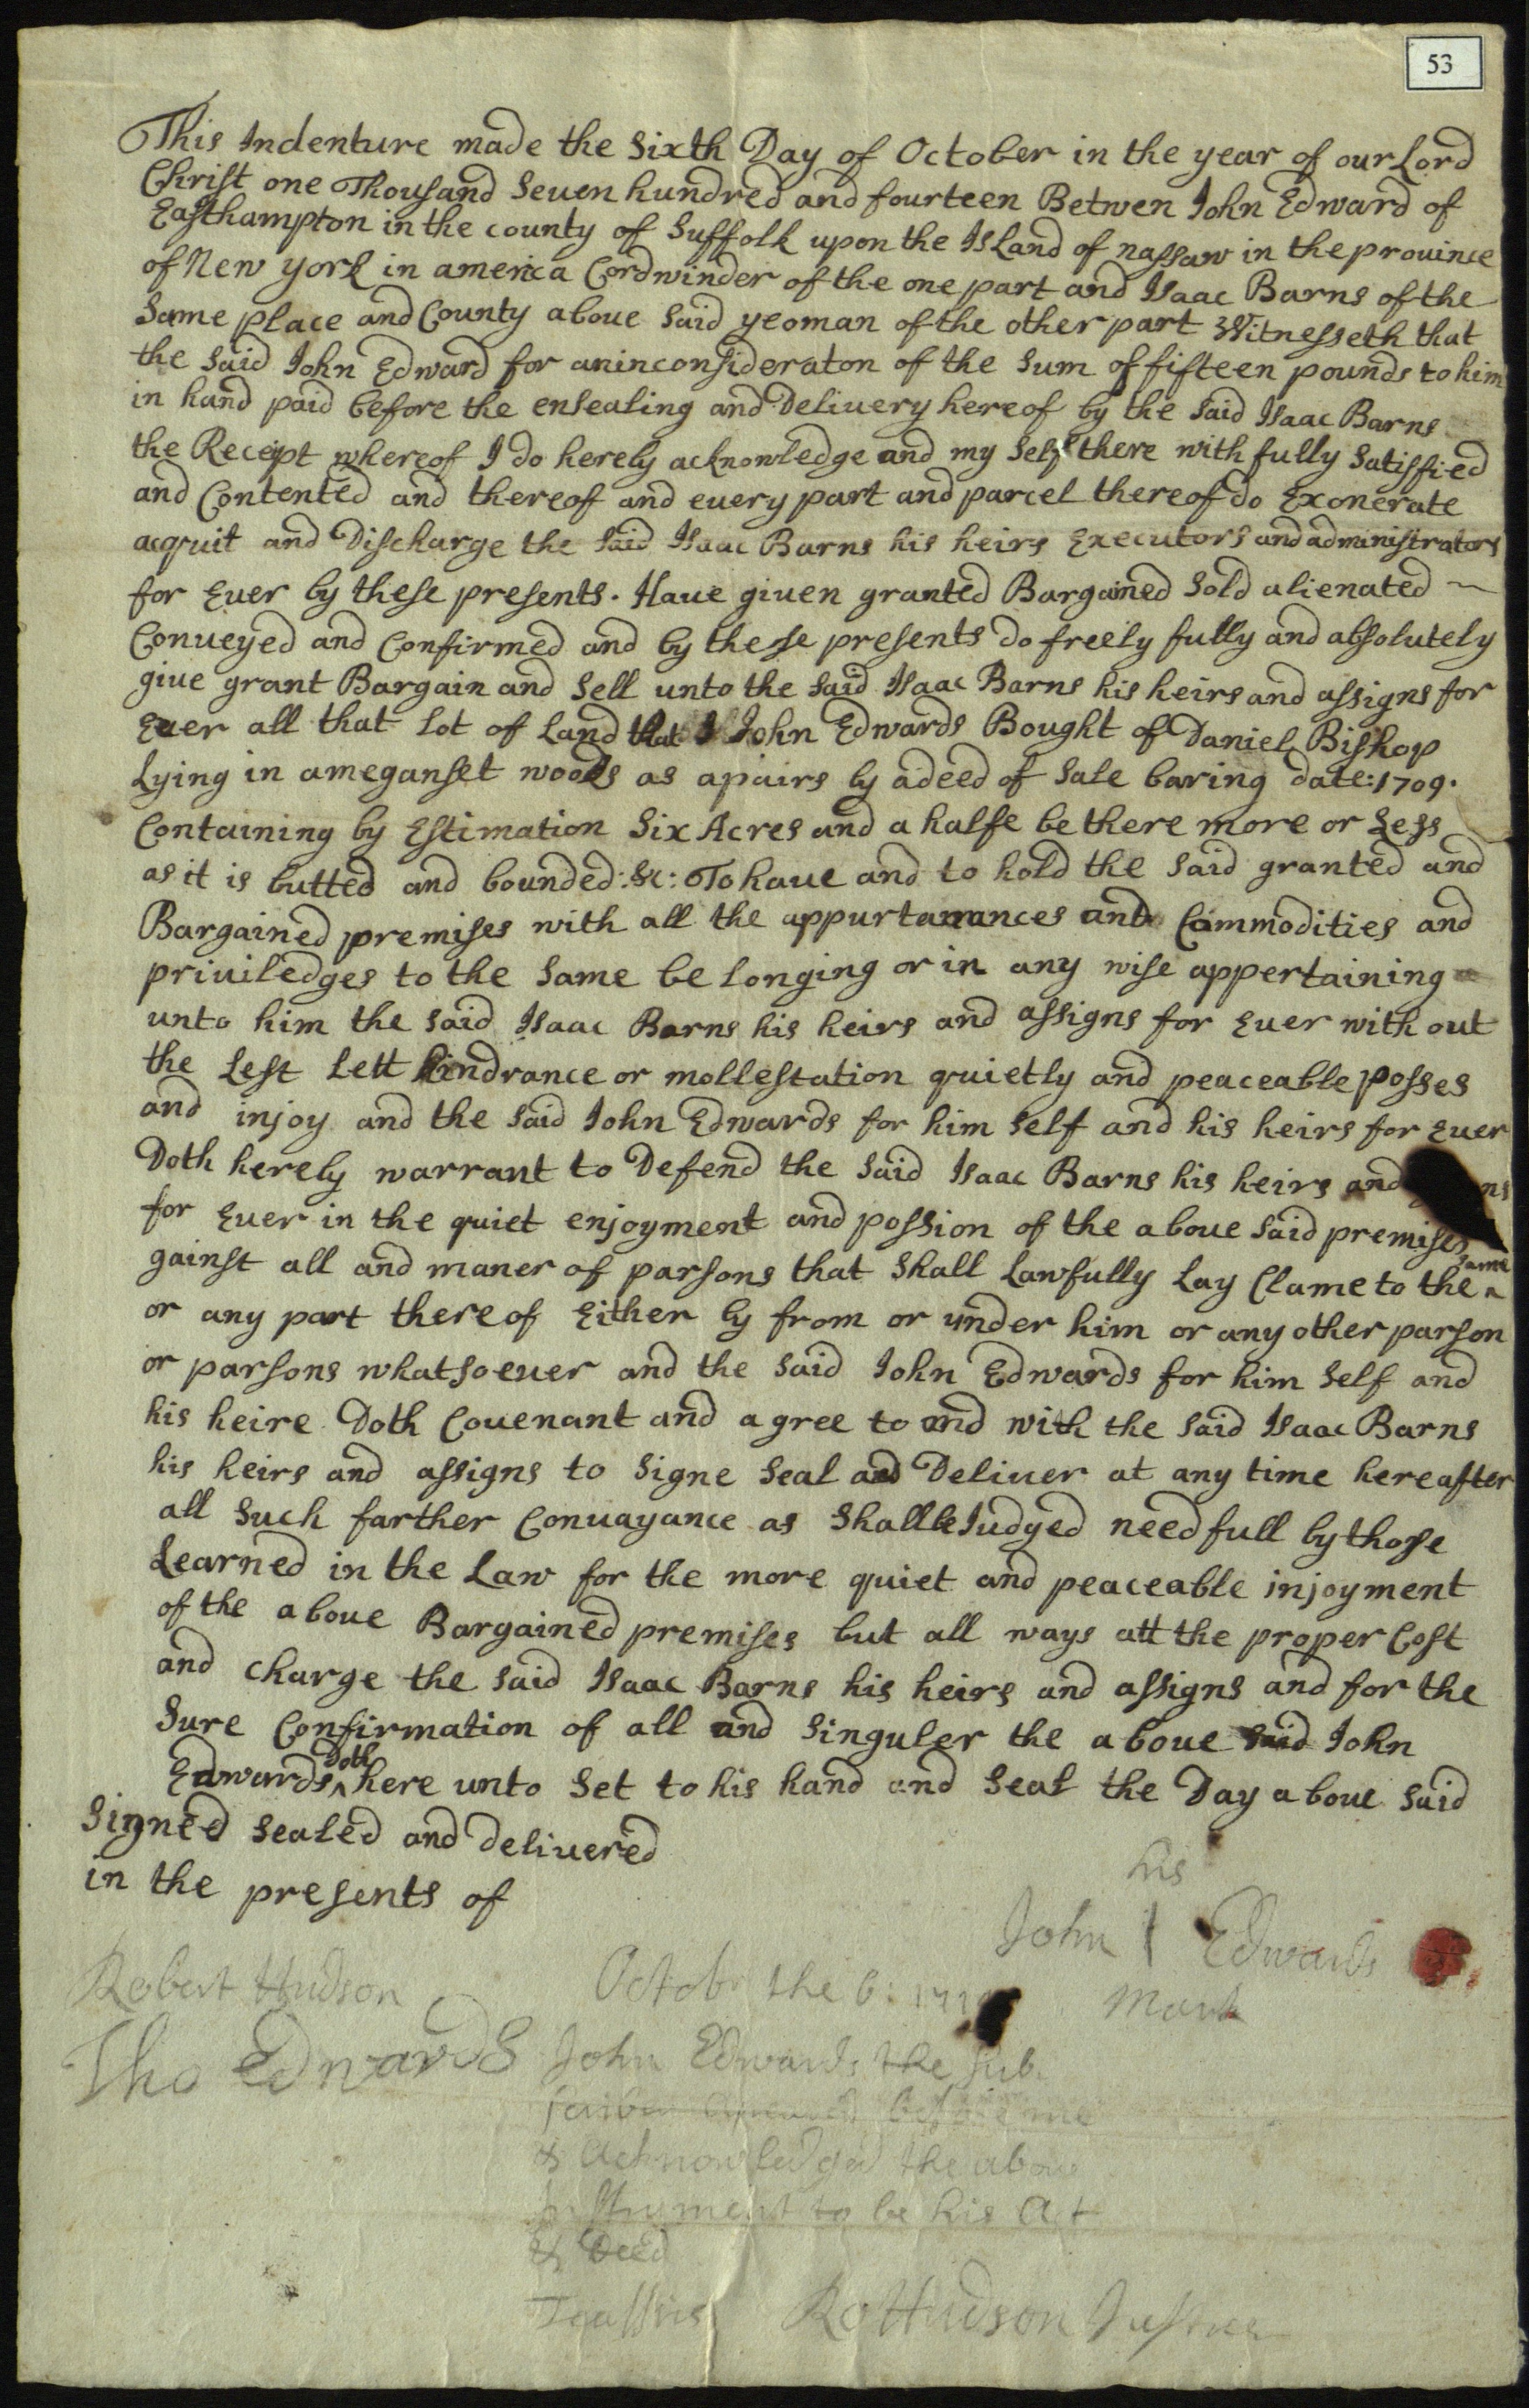 53
This Indenture made the Sixth Day of October in the year of our Lord
Christ one Thousand Seuen hundred and fourteen Betwen John Edward of
Easthampton in the county of Suffolk upon the Island of nassaw in the prouince
of New york in america Cordwinder of the one part and Isaac Barns of the
Same place and County aboue Said yeoman of the other part Witnesseth that
the Said John Edward for aninconsideraton of the Sum of fifteen pounds to him
in hand paid before the ensealing and Deliuery hereof by the Said Isaac Barns
the Receipt whereof I do hereby acknowledge and my Self there with fully Satisfied
and Contented and thereof and euery part and parcel thereof do Exonerate
acquit and Discharge the Said Isaac Barns his heirs Executors and administrators
for Euer by these presents. Haue giuen granted Bargained Sold alienated ~
Conueyed and Confirmed and by these presents do freely fully and absolutely
giue grant Bargain and Sell unto the Said Isaac Barns his heirs and assigns for
Euer all that Lot of Land that I John Edwards Bought of Daniel Bishop
Lying in ameganset woods as apairs by adeed of Sale baring date: 1709.
Containing by Estimation Six Acres and a halfe be there more or Less
as it is butted and bounded :&c: To haue and to hold the Said granted and
Bargained premises with all the appurtanances and Commodities and
priuiledges to the Same be longing or in any wise appertaining
unto him the Said Isaac Barns his heirs and assigns for Euer with out
the Lest Lett hindrance or mollestation quietly and peaceable posses
and injoy and the Said John Edwards for him Self and his heirs for Euer
Doth hereby warrant to Defend the Said Isaac Barns his heirs and
for Euer in the quiet enjoyment and possion of the aboue Said premises
gainst all and maner of parsons that Shall Lawfully Lay Clame to the ^ same
or any part there of Either by from or under him or any other parson
or parsons whatsoeuer and the Said John Edwards for him Self and
his heire Doth Couenant and agree to and with the Said Isaac Barns
his heirs and assigns to Signe Seal and Deliuer at any time hereafter
all Such farther Conuayance as Shall be Judged needfull by those
Learned in the Law for the more quiet and peaceable injoyment
of the aboue Bargained premises but all ways att the proper Cost
and Charge the Said Isaac Barns his heirs and assigns and for the
Sure Confirmation of all and Singuler the aboue Said John
Edwards ^ Doth here unto Set to his hand and Seal the Day aboue Said
Signed Sealed and deliuered
in the presents of
his
John | Edwards
Mark
Robert Hudson
Tho Edwards
Octob the 6:
John Edwards the Sub
before me
& Acknowledged the aboue
Instrument to be his Act
& Deed
Ro Hudson Justice